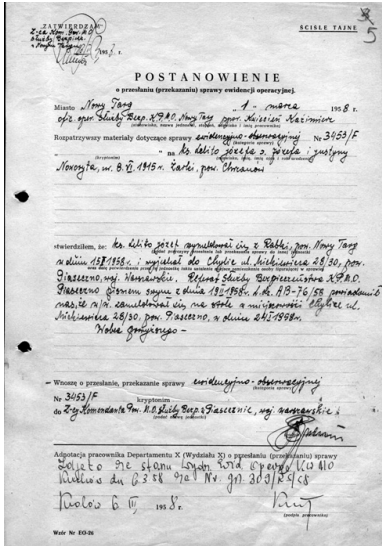 ZATWIERDZAM
ŚCIŚLE TAJNE
Z-ca Kom. Pow. M.O.
Służby Bezp.
w Nowym Targu
5
195 8 r.
POSTANOWIENIE
o przesłaniu (przekazaniu) sprawy ewidencji operacyjnej.
Miasto Nowy Targ "1" marca 1958 r.
ofic. oper. Służby Bezp. K.P.M.O. Nowy Targ ppor. Kwiecień Kazimierz
Rozpatrzywszy materiały dotyczące sprawy ewidencyjno-obserwacyjnej Nr 3453/F
(kategoria sprawy)
" na ks. Lelito Józefa s. Józefa i Justyny
(kryptonim)
ur. 8.VI. 1915 r. Żarki, pow. Chrzanów
stwierdziłem, że: ks. Lelito Józef wymeldował się z Rabki, pow. Nowy Targ
w dniu 1958 r. i wyjechał do Chylic ul. Mickiewicza 28/30, pow.
Piaseczno, woj. Warszawskie. Referat Służby Bezpieczeństwa K.P.M.O.
Piaseczno pismem swym z dnia 1958 r. L.dz. AB-76/58 powiadomił
nas, że w/w. zameldował się na stałe w miejscowości Chylice ul.
Mickiewicza 28/30, pow. Piaseczno, w dniu 24 I 1958 r.
Wobec powyższego -
Wnoszę o przesłanie, przekazanie sprawy ewidencyjno-obserwacyjnej
(kategoria sprawy)
Nr 3453/F kryptonim
do Z-cy Komendanta Pow. M.O. d/s Służby Bezp. w Piasecznie, woj. warszawskie
Adnotacja pracownika Departamentu X (Wydziału X) o przesłaniu (przekazaniu) sprawy
Zdjęto ze stanu Wydz. Ewid. Operac. KW MO
Kraków dn. 6.3.58 za Nr. 303/58
Kraków 6. III. 1958 r.
(podpis pracownika)
Wzór Nr EO-26